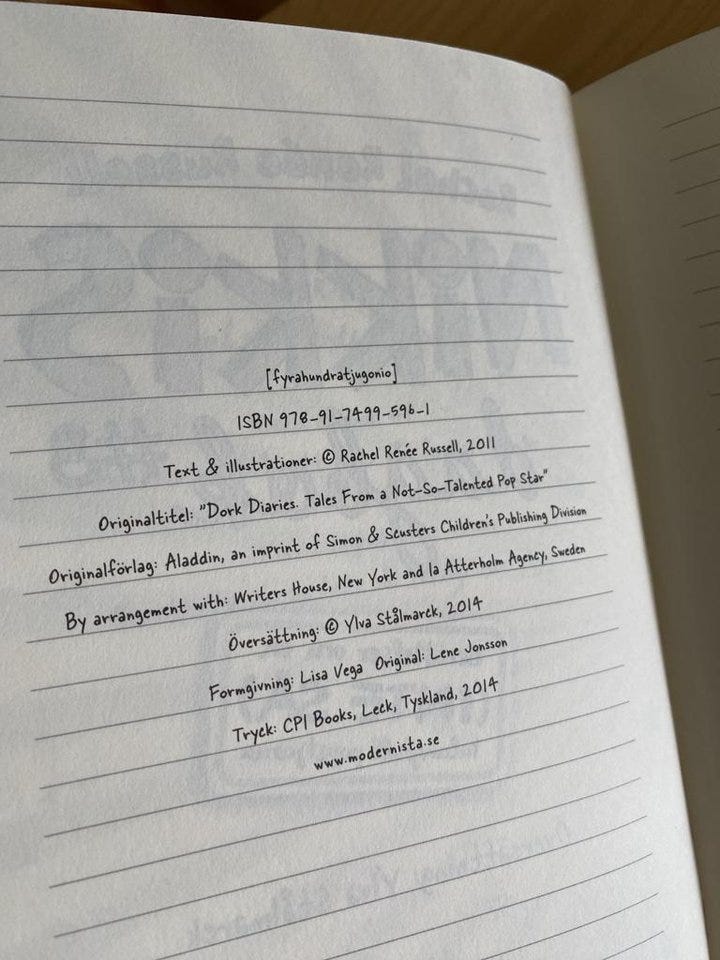 [fyrahundratjugonio]
ISBN 978-91-7499-596-1
Text & illustrationer: © Rachel Renée Russell, 2011
Originaltitel: "Dork Diaries. Tales From a Not-So-Talented Pop Star"
Originalförlag: Aladdin, an imprint of Simon & Scusters Children's Publishing Division
By arrangement with: Writers House, New York and la Atterholm Agency, Sweden
Översättning: © Ylva Stålmarck, 2014
Formgivning: Lisa Vega Original: Lene Jonsson
Tryck: CPI Books, Leck, Tyskland, 2014
www.modernista.se